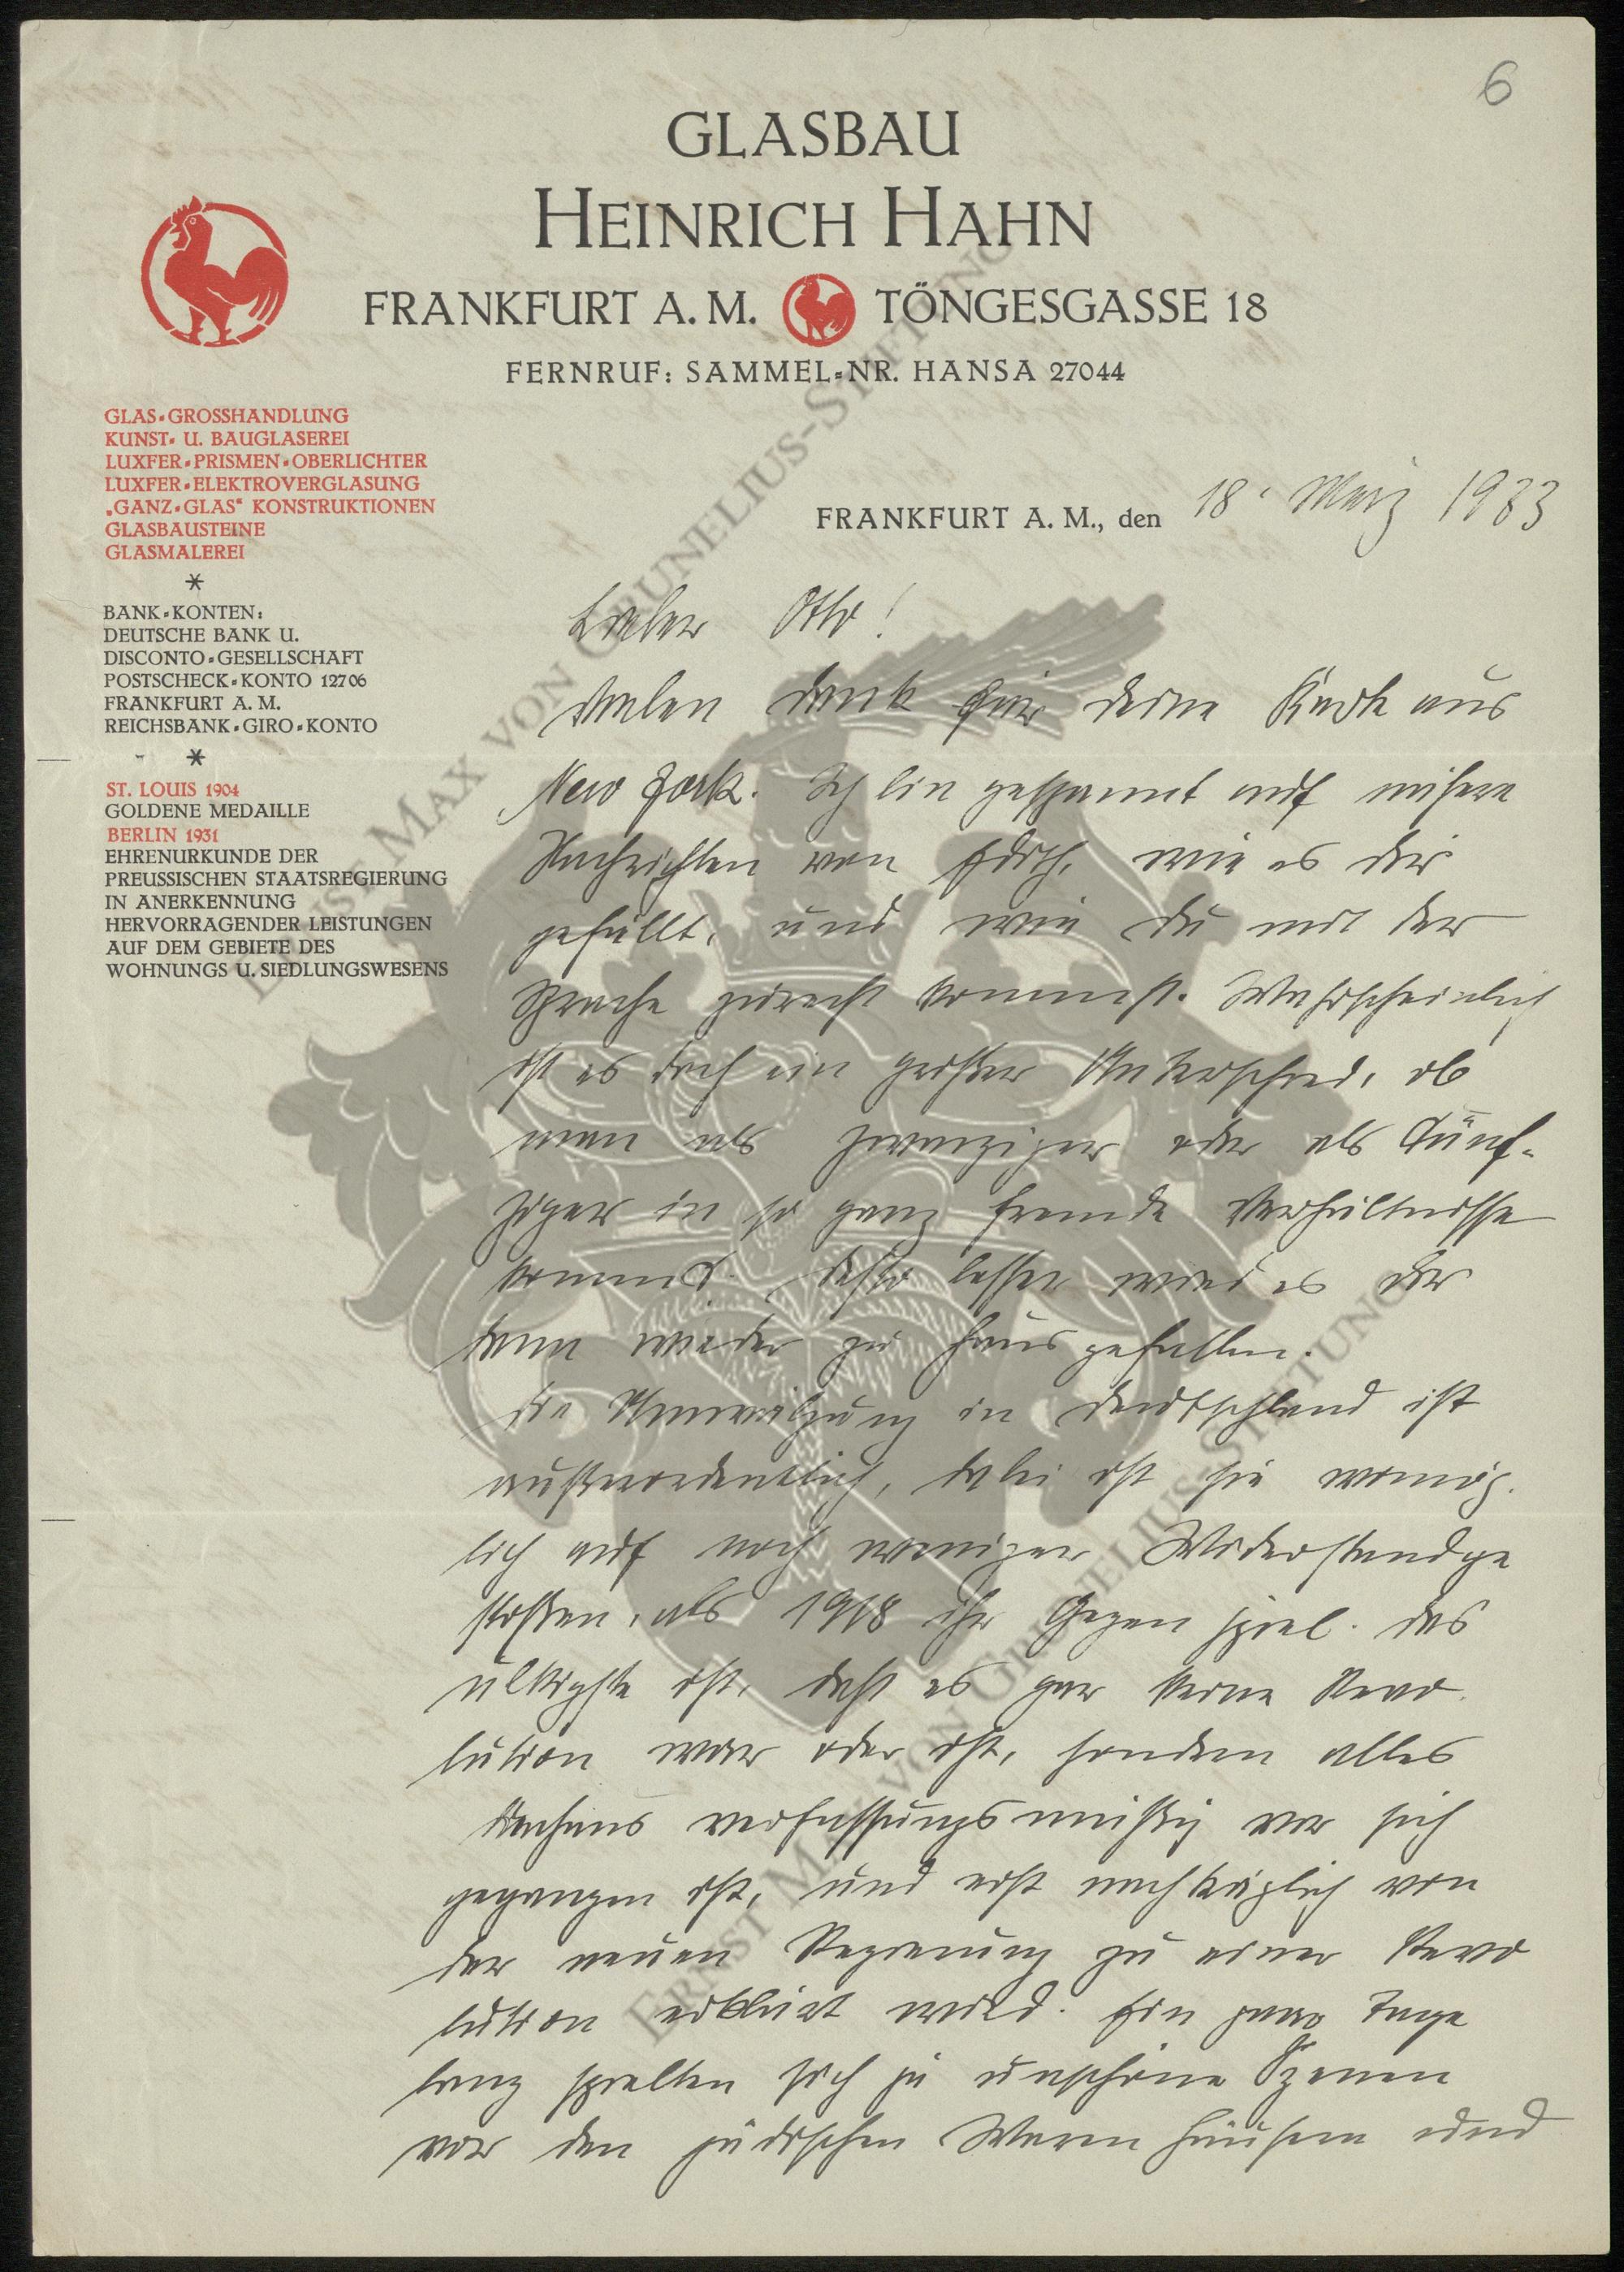 6
GLASBAU
HEINRICH HAHN
FRANKFURT A. M. TÖNGESGASSE 18
FERNRUF: SAMMEL-NR. HANSA 27044
GLAS-GROSSHANDLUNG
KUNST- U. BAUGLASEREI
LUXFER-PRISMEN-OBERLICHTER
LUXFER-ELEKTROVERGLASUNG
„GANZ-GLAS" KONSTRUKTIONEN
GLASBAUSTEINE
GLASMALEREI
*
BANK-KONTEN:
DEUTSCHE BANK U.
DISCONTO-GESELLSCHAFT
POSTSCHECK-KONTO 12706
FRANKFURT A. M.
REICHSBANK-GIRO-KONTO
*
ST. LOUIS 1904
GOLDENE MEDAILLE
BERLIN 1931
EHRENURKUNDE DER
PREUSSISCHEN STAATSREGIERUNG
IN ANERKENNUNG
HERVORRAGENDER LEISTUNGEN
AUF DEM GEBIETE DES
WOHNUNGS U. SIEDLUNGSWESENS
FRANKFURT A. M., den 18. März 1933
Lieber Otto!
Vielen Dank für deine Karte aus
New York. Ich bin gespannt auf
Nachrichten von Edith, wie es dir
gefällt, und wie du mit der
Sprache zurecht kommst. Wahrscheinlich
ist es doch ein großer Unterschied, ob
man als Zwanziger oder als Fünf-
ziger in so ganz fremde Verhältnisse
kommt. Desto besser wird es dir
dann wieder zu Haus gefallen.
Die Umwälzung in Deutschland ist
außerordentlich, dabei ist sie womög-
lich auf noch weniger Widerstand ge
stoßen, als 1918 ihr Gegenspiel. Das
ulkigste ist, daß es gar keine Revo-
lution war oder ist, sondern alles
durchaus verfassungsmäßig vor sich
gegangen ist, und erst nachträglich von
der neuen Regierung zu einer Revo
lution erklärt wird. Ein paar Tage
lang spielten sich ja unschöne Szenen
vor den jüdischen Warenhäusern und
ERNST MAX VON GRUNELIUS-STIFTUNG
ERNST MAX VON GRUNELIUS-STIFTUNG